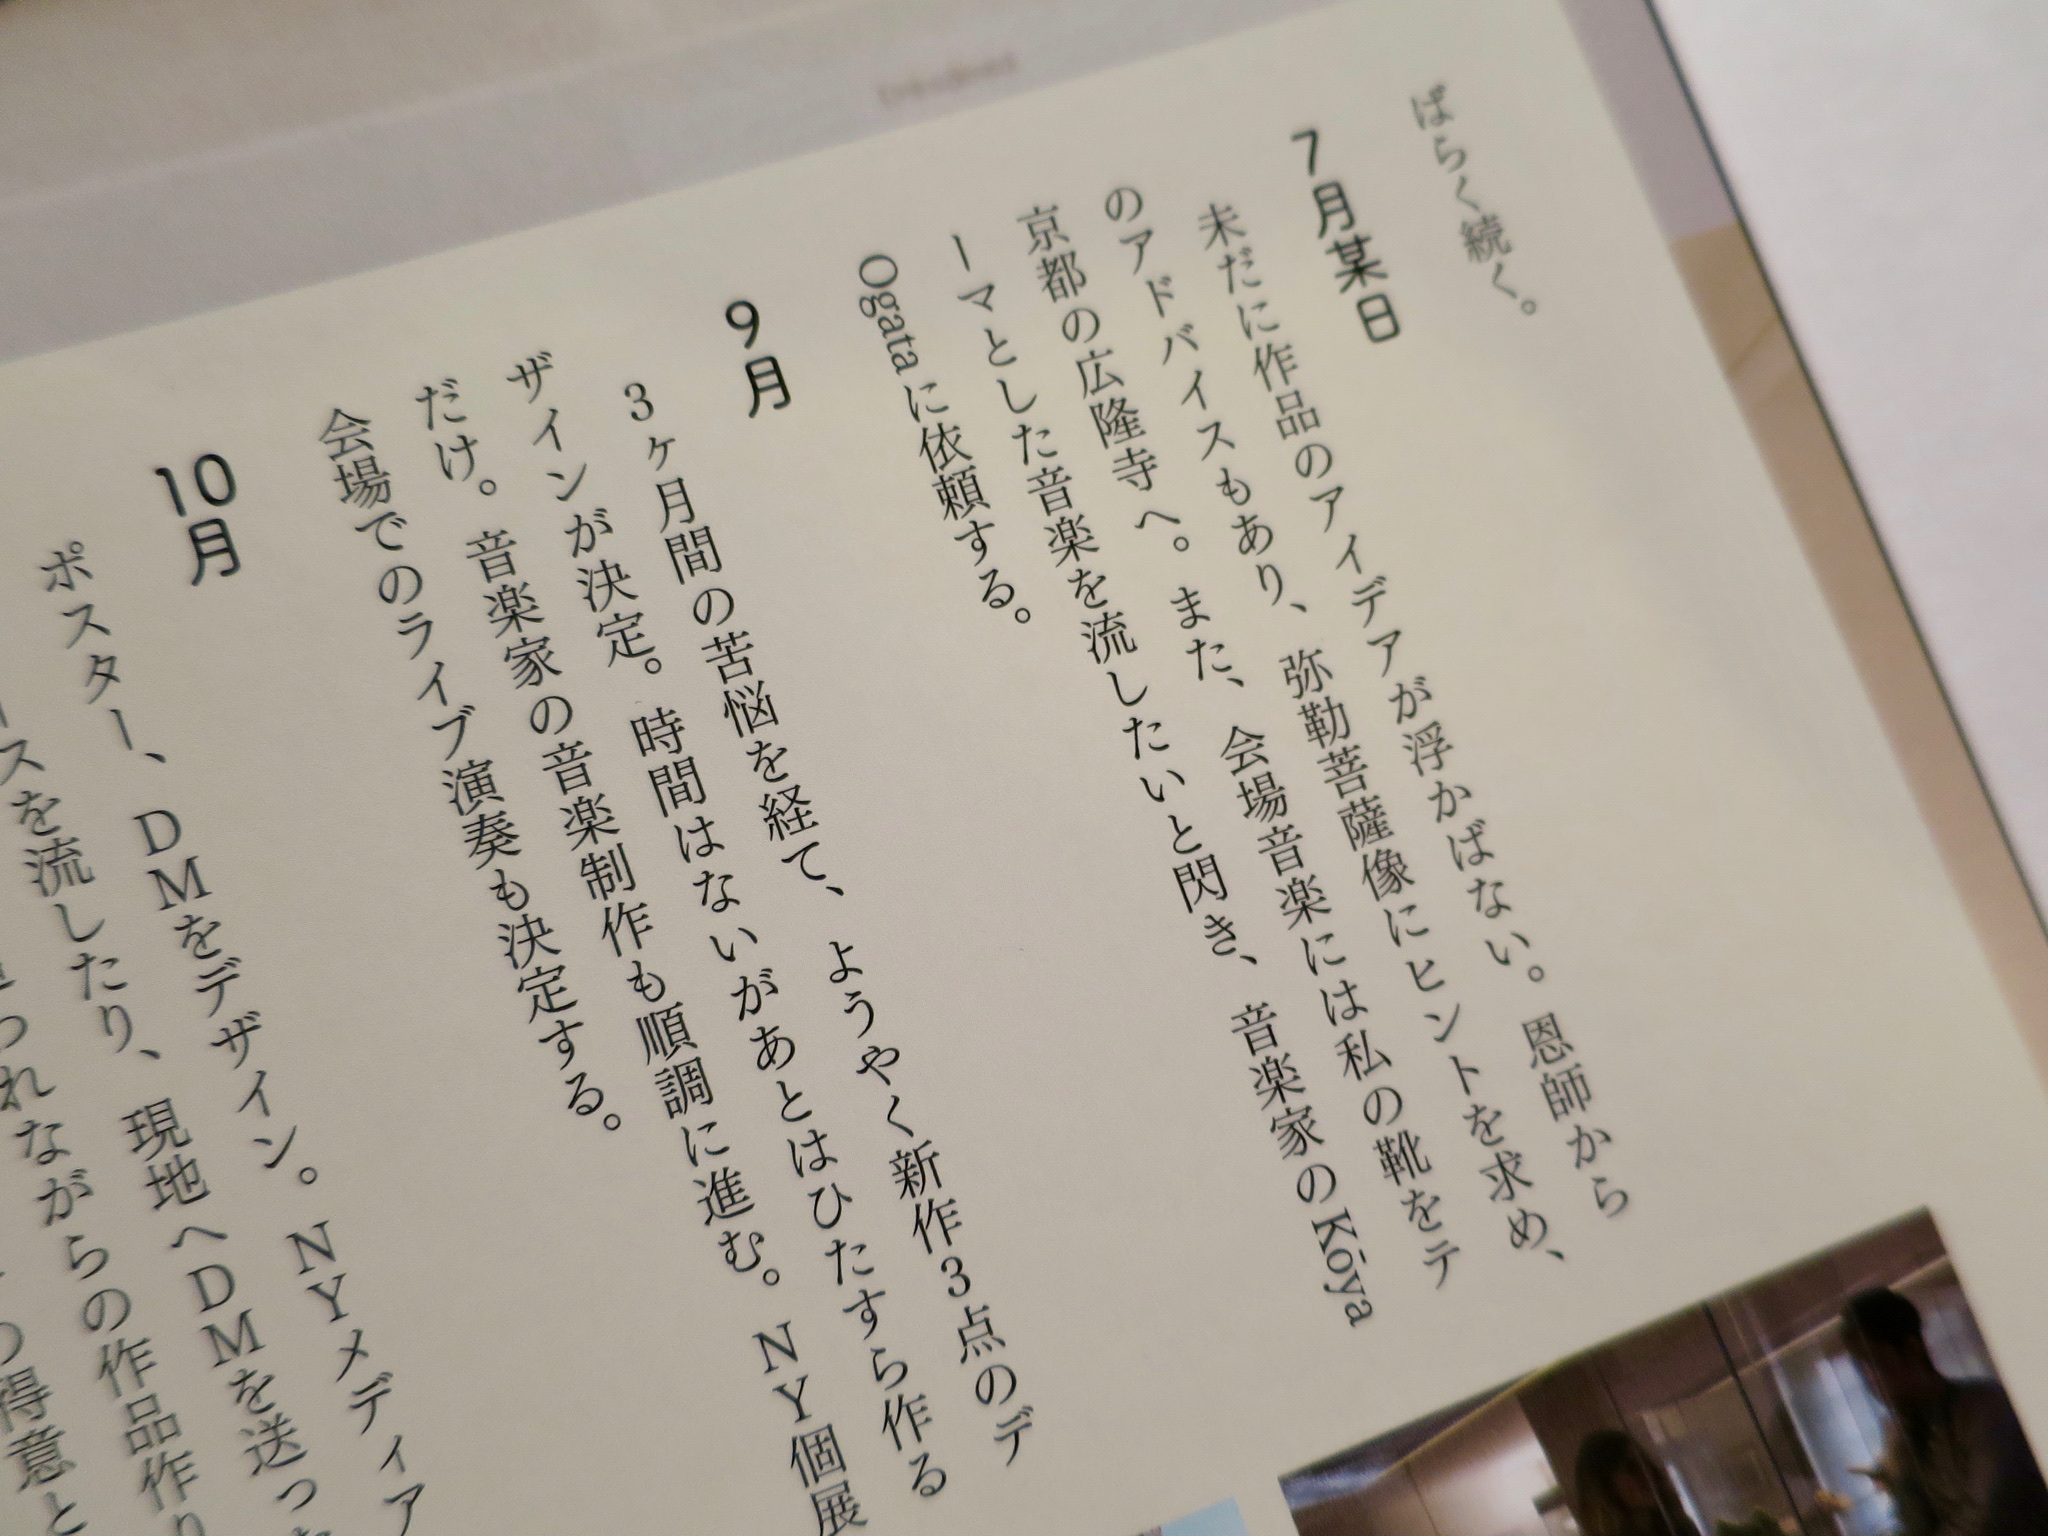 ばらく続く。
7月某日
未だに作品のアイデアが浮かばない。恩師から
のアドバイスもあり、弥勒菩薩像にヒントを求め、
京都の広隆寺へ。また、会場音楽には私の靴をテ
ーマとした音楽を流したいと閃き、音楽家のKōya
Ogataに依頼する。
9月
3ヶ月間の苦悩を経て、ようやく新作3点のデ
ザインが決定。時間はないがあとはひたすら作る
だけ。音楽家の音楽制作も順調に進む。NY個展
会場でのライブ演奏も決定する。
10月
ポスター、DMをデザイン。NYメディア
ースを流したり、現地へDMを送った
われながらの作品作り
の得意と